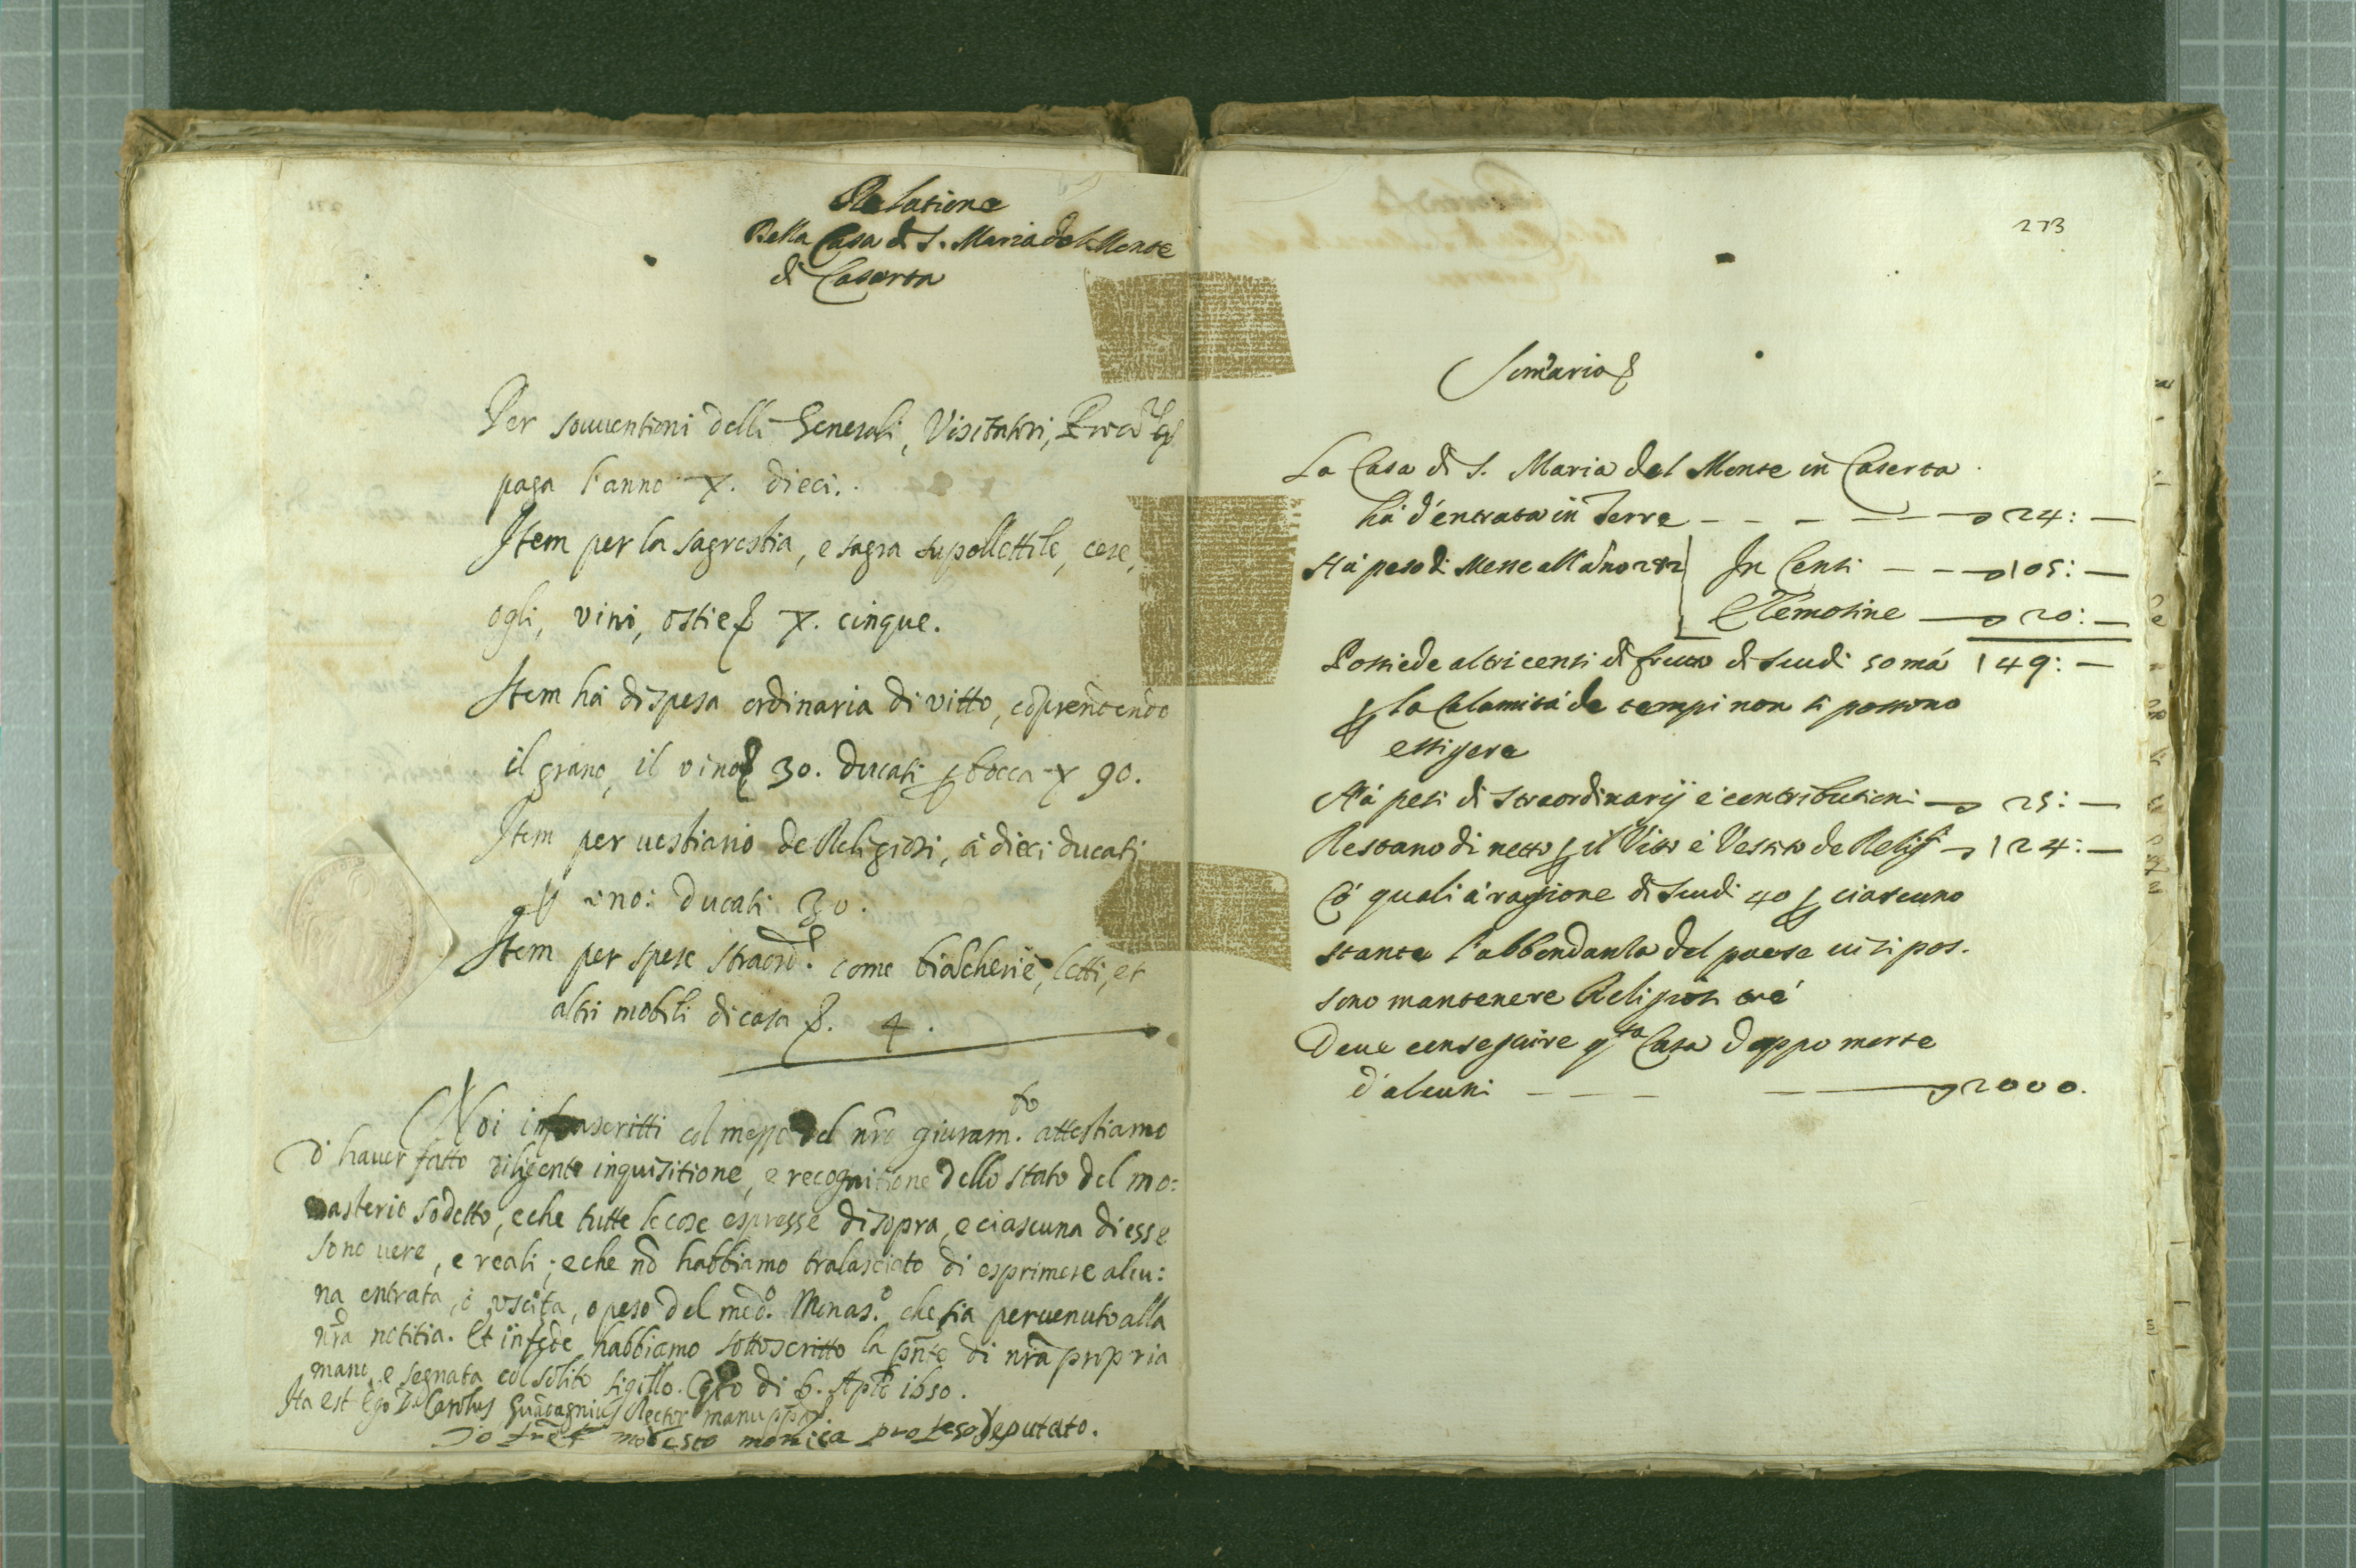 Relatione
Della Casa di S. Maria del Monte
di Caserta
Per souuentioni delli Generali, Visitatori,
paga l'anno X. dieci.
Item per la sagrestia, e sagra supollettile, cere,
ogli, vini, ostie X. cinque.
Item há di spesa ordinaria di vitto, cōprendendo
il grano, il vino 30. ducati bocca X 90.
Item per uestiario de Religiosi, á dieci ducati
uno: ducati 30.
Item per spese straord. come biācherie, letti, et
altri mobili di casa 4.
Noi infrascritti col mezzo del nr̃o giuram.to attestiamo
d'hauer fatto diligente inquisitione, e recognitione dello stato del mo:
nasterio sodetto, e che tutte le cose espresse di sopra, e ciascuna di esse
sono uere, e reali; e che nō habbiamo tralasciato di esprimere alcu:
na entrata, ò uscita, o peso del med.o Monas.o che sia peruenuto alla
nr̃a notitia. Et in fede habbiamo sottoscritto la pn̄te di nr̃a propria
mano, e segnata col solito sigillo. di 6. Aple 1650.
Ita est Ego D. Carolus Guadagnius Rector manu pp.a
Io modesto deputato.
273
Som̃ario
La Casa di S. Maria del Monte in Caserta
há d'entrata in Terre 24: —
Há peso di Messe all'ãno 282 In Censi 105: —
Elemosine 20: —
Possiede altri censi di frutto di scudi 50 má 149: —
la Calamitá de tempi non si possono
essigere
Há pesi di straordinarij e contributioni 25: —
Restano di netto il Vitto e Vestito de Relig.si 124: —
Có quali á ragione di scudi 40 ciascuno
stante l'abbondanza del paese ui si pos-
sono mantenere Religiosi tré
Deue conseguire q.ta Casa doppo morte
d'alcuni 2000.